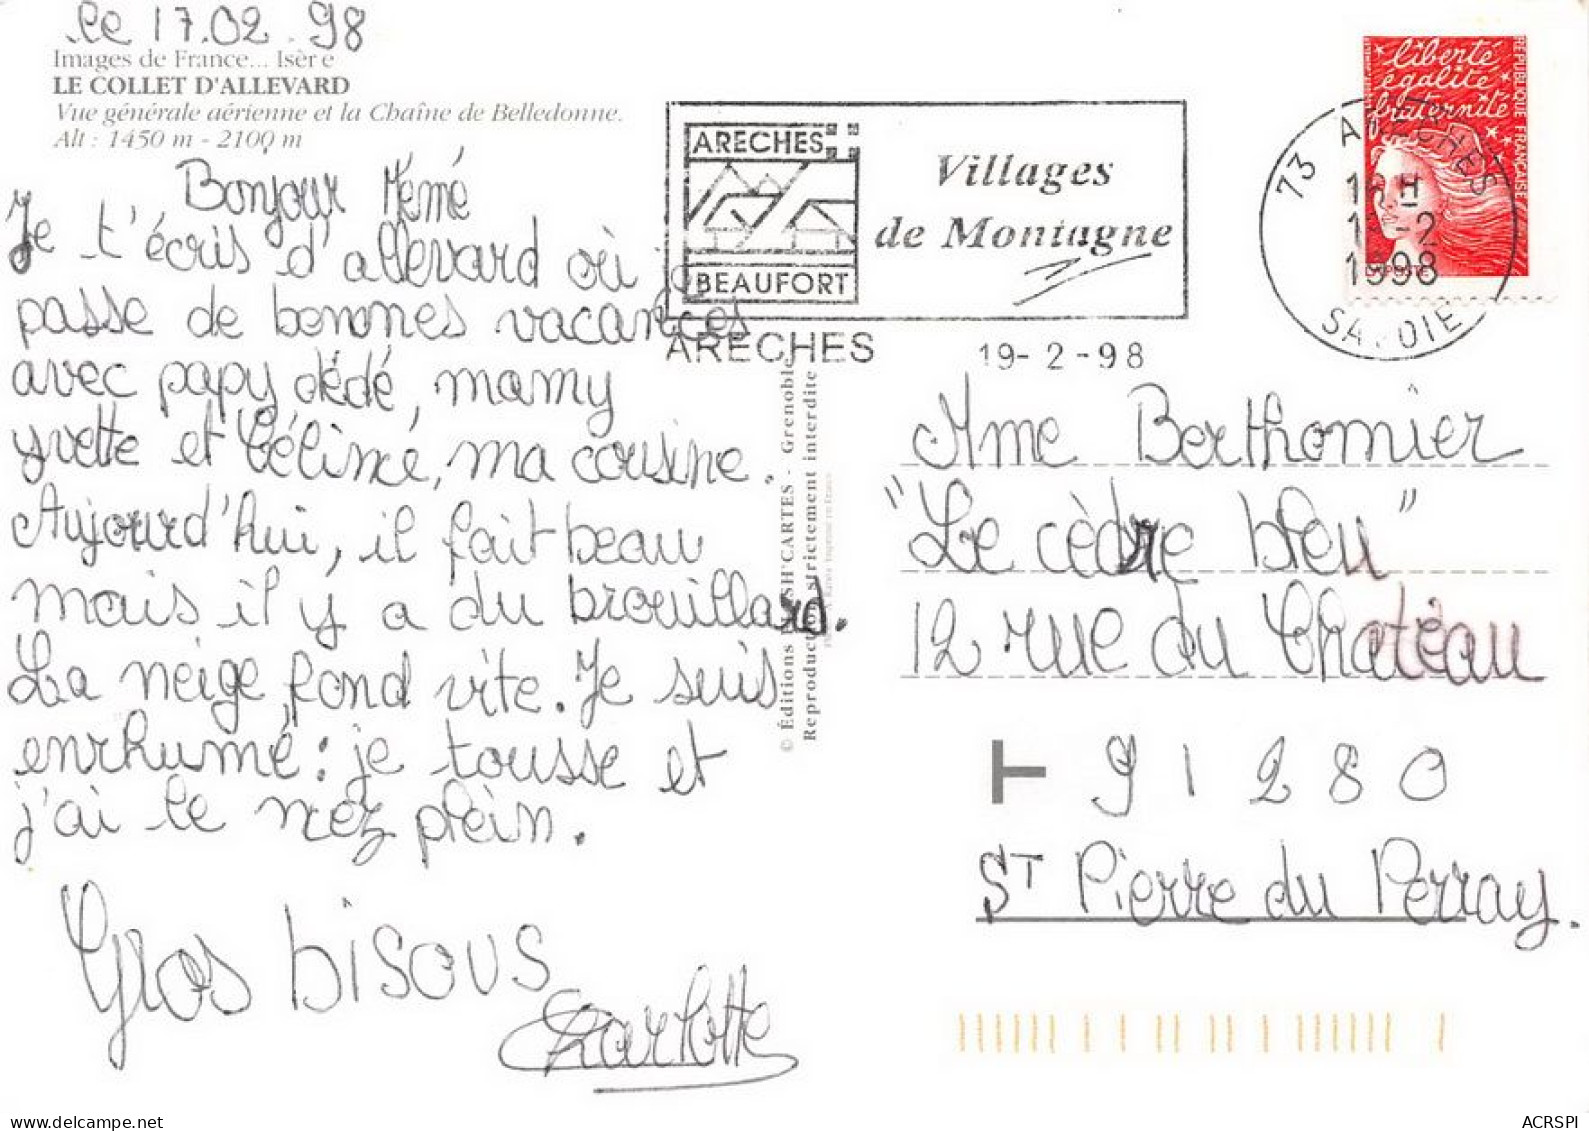 le 17.02.98
Images de France... Isère
LE COLLET D'ALLEVARD
Vue générale aérienne et la Chaîne de Belledonne.
Alt : 1450 m - 2100 m
Bonjour Mémé
Je t'écris d'allevard où je
passe de bonnes vacances
avec papy dédé, mamy
yvette et Céline, ma cousine.
Aujourd'hui, il fait beau
mais il y a du brouillard.
La neige fond vite. Je suis
enrhumé : je tousse et
j'ai le nez plein.
Gros bisous
Charlotte
ARECHES
BEAUFORT
Villages
de Montagne
ARECHES 19-2-98
73 ARECHES
16 H
-2
1998
SAVOIE
liberté
égalité
fraternité
RÉPUBLIQUE FRANÇAISE
LA POSTE
© Éditions CARTES - Grenoble
Reproduction strictement interdite
Mme Berthomier
"Le cèdre bleu"
12 rue du Château
T 91280
ST Pierre du Perray.
ACRSPI